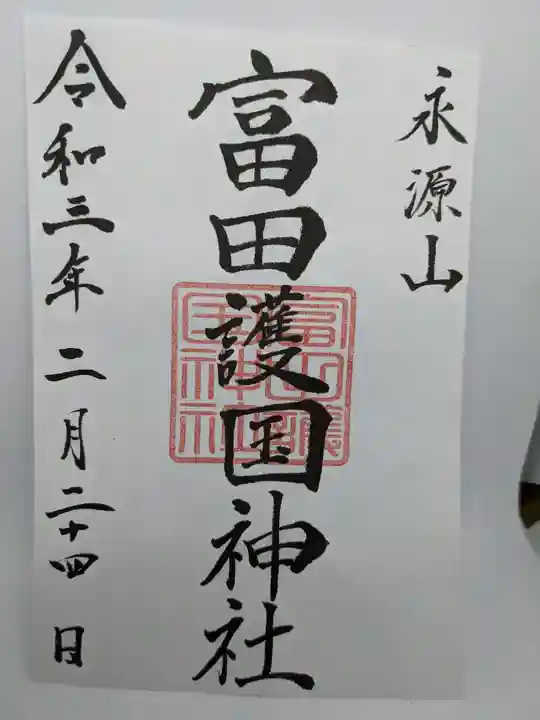 永源山
富田護国神社
令和三年二月二十四日